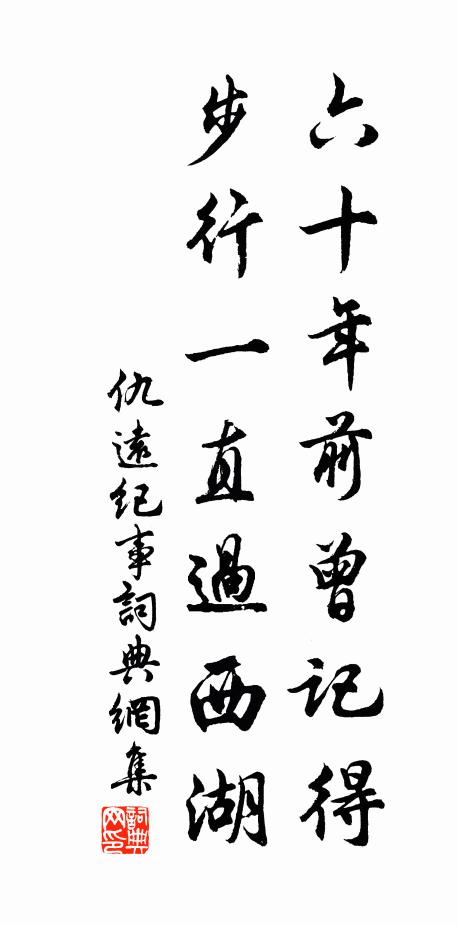 六十年前曾記得
步行一直過西湖
仇遠紀事詞典網集
詞典网印